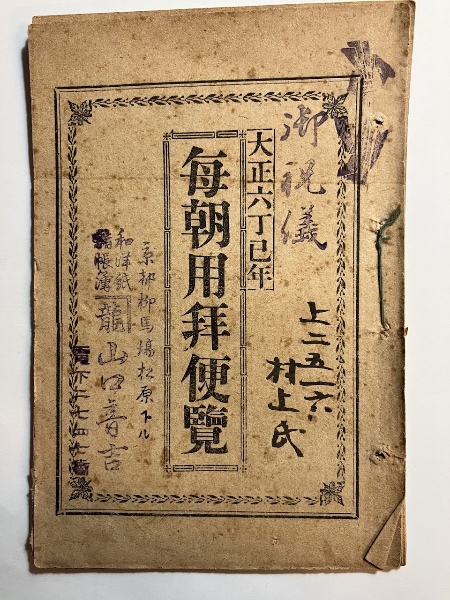 御祝儀
上二五一六
村上氏
大正六丁巳年
毎朝用拜便覽
京都柳馬場松原下ル
和洋紙
諸帳簿
龍山口音吉